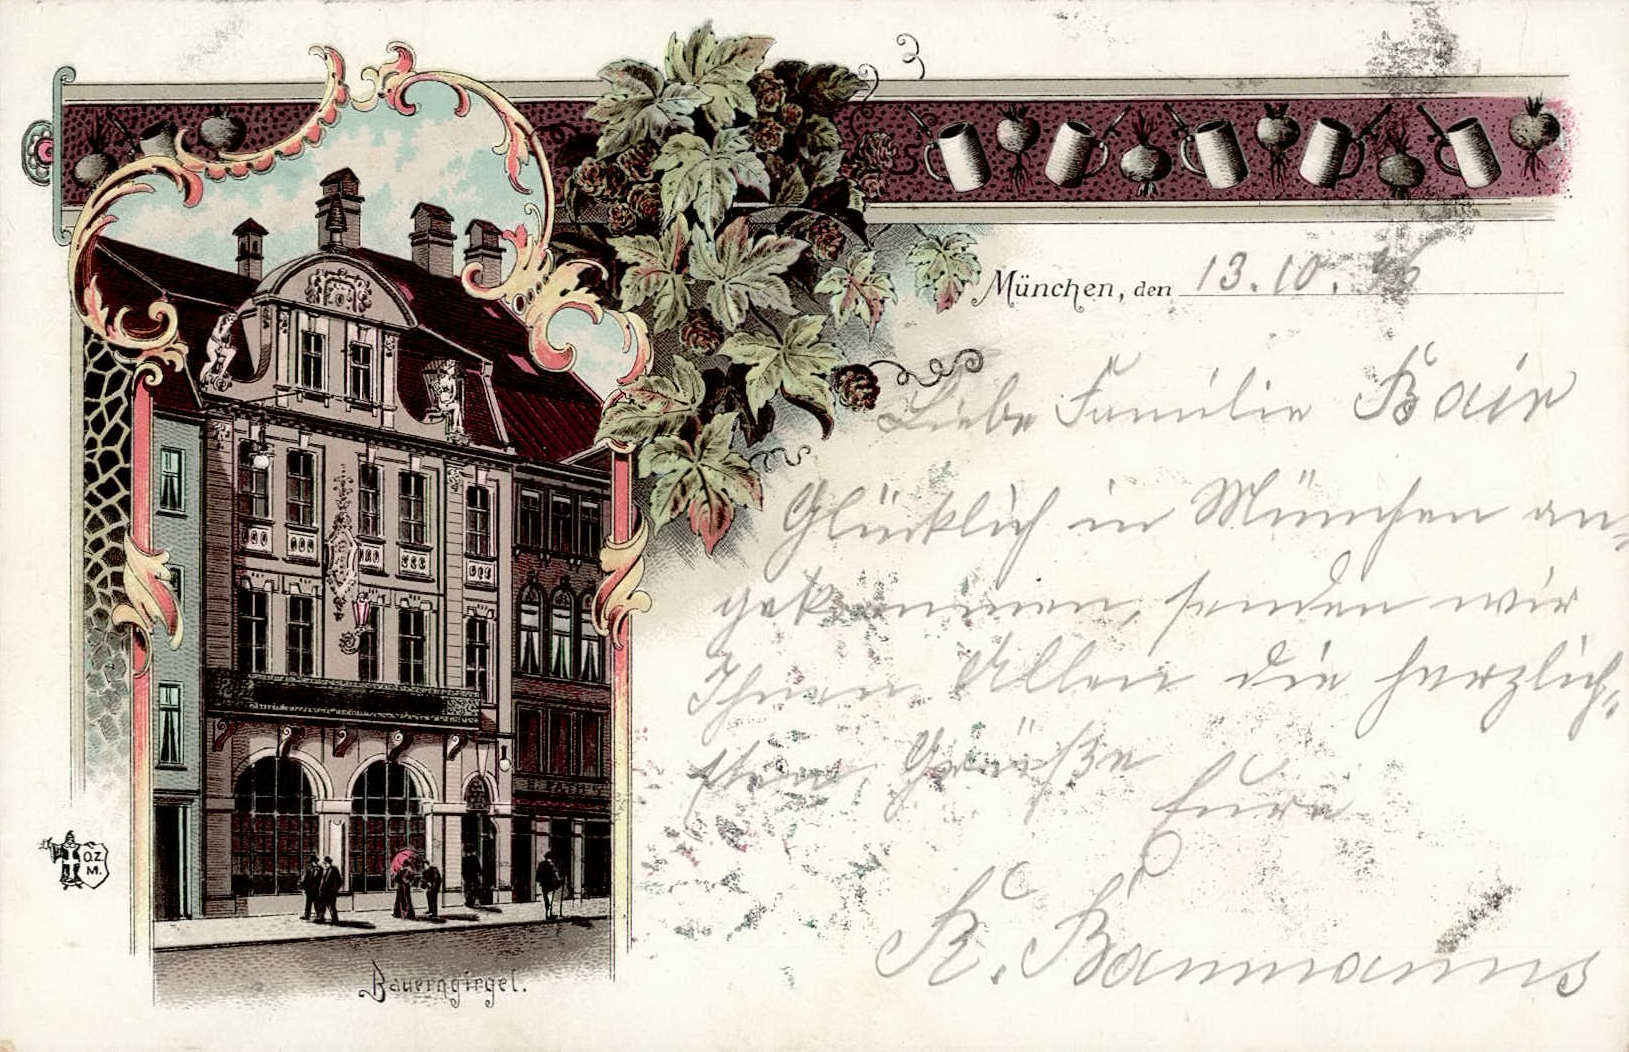 München, den 13. 10. 96
Liebe Familie Bair
Glücklich in München an-
gekommen, senden wir
Ihnen Allen die herzlich-
sten Grüße
Eure
K. Baumanns
Bauerngirgel.
O.Z.
M.